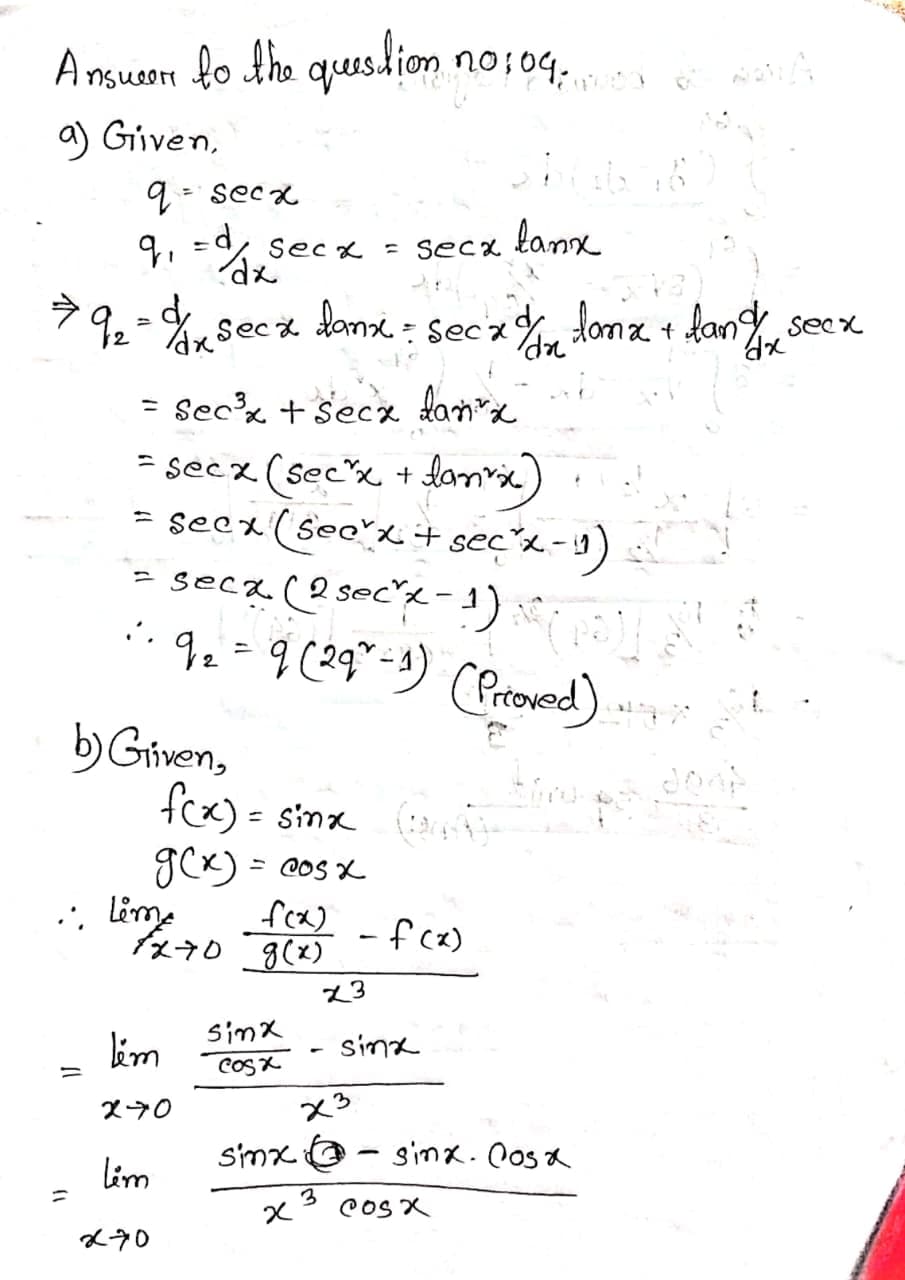 Answer to the question no: 04.
a) Given,
q = sec x
q₁ = d/dx sec x = sec x tan x
⇒ q₂ = d/dx sec x tan x = sec x d/dx tan x + tan d/dx sec x
= sec³x + sec x tan²x
= sec x (sec²x + tan²x)
= sec x (sec²x + sec²x - 1)
= sec x (2 sec²x - 1)
∴ q₂ = q (2q² - 1) (Proved)
b) Given,
f(x) = sin x
g(x) = cos x
∴ lim x→0 (f(x)/g(x) - f(x)) / x³
= lim x→0 (sin x/cos x - sin x) / x³
= lim x→0 (sin x - sin x . cos x) / (x³ cos x)